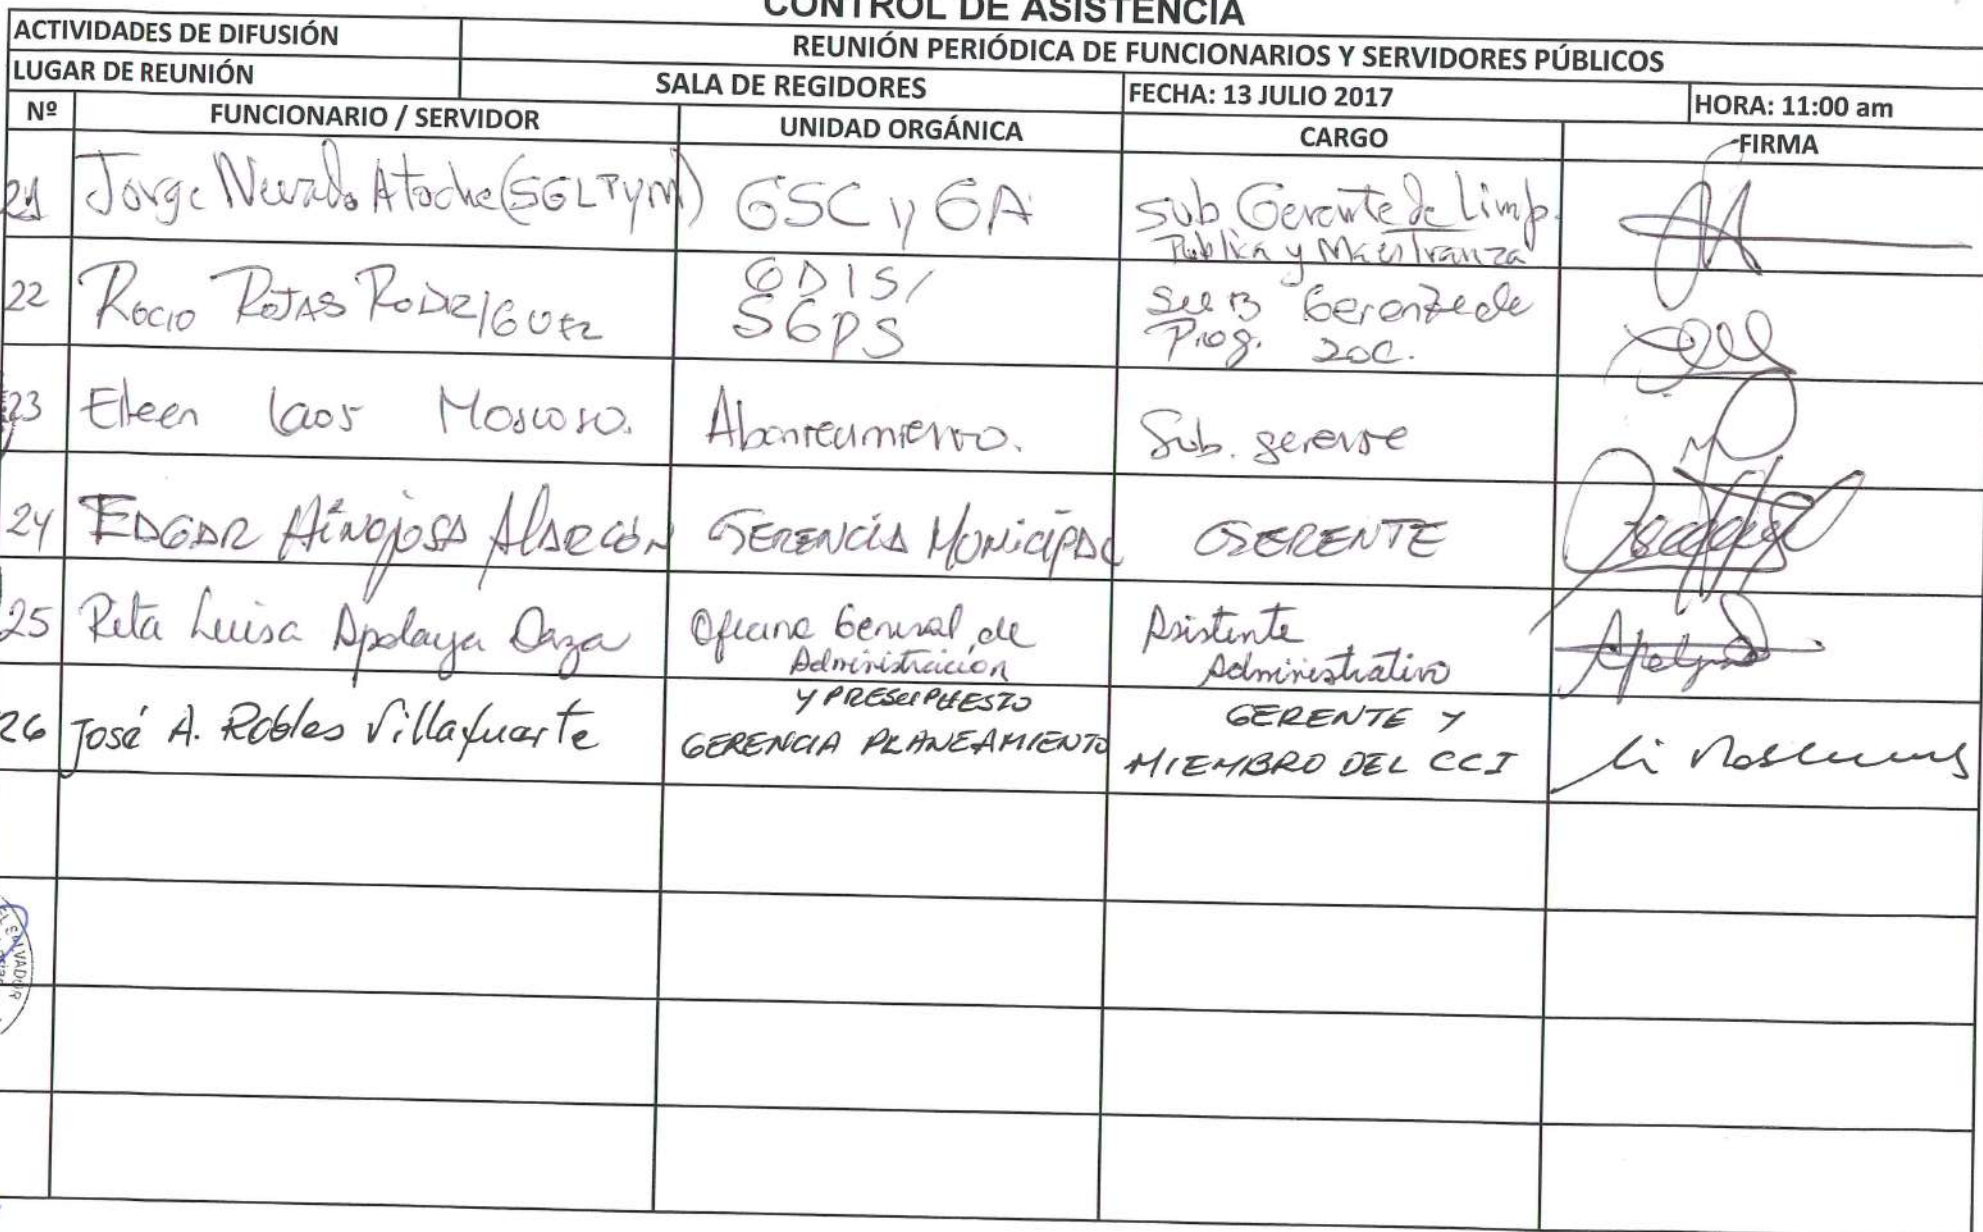 CONTROL DE ASISTENCIA
ACTIVIDADES DE DIFUSIÓN REUNIÓN PERIÓDICA DE FUNCIONARIOS Y SERVIDORES PÚBLICOS
LUGAR DE REUNIÓN SALA DE REGIDORES FECHA: 13 JULIO 2017 HORA: 11:00 am
Nº FUNCIONARIO / SERVIDOR UNIDAD ORGÁNICA CARGO FIRMA
21 Jorge Atoche (SGLPyM) GSC y GA Sub Gerente de Limp.
Publica y Maestranza
22 Rocio Rojas Rodriguez ODIS/
SGPS
Sub Gerente de
Prog. Soc.
23 Eileen Laos Moscoso. Abastecimiento. Sub. gerente
24 EDGAR HiNojosa AlARCÓN GERENCIA MUNiCipAL GERENTE
25 Rita Luisa Apolaya Daza Oficina General de
Administración
Asistente
Administrativo
26 José A. Robles Villafuerte Y PRESUPUESTO
GERENCIA PLANEAMIENTO
GERENTE Y
MIEMBRO DEL CCI
EL SALVADOR